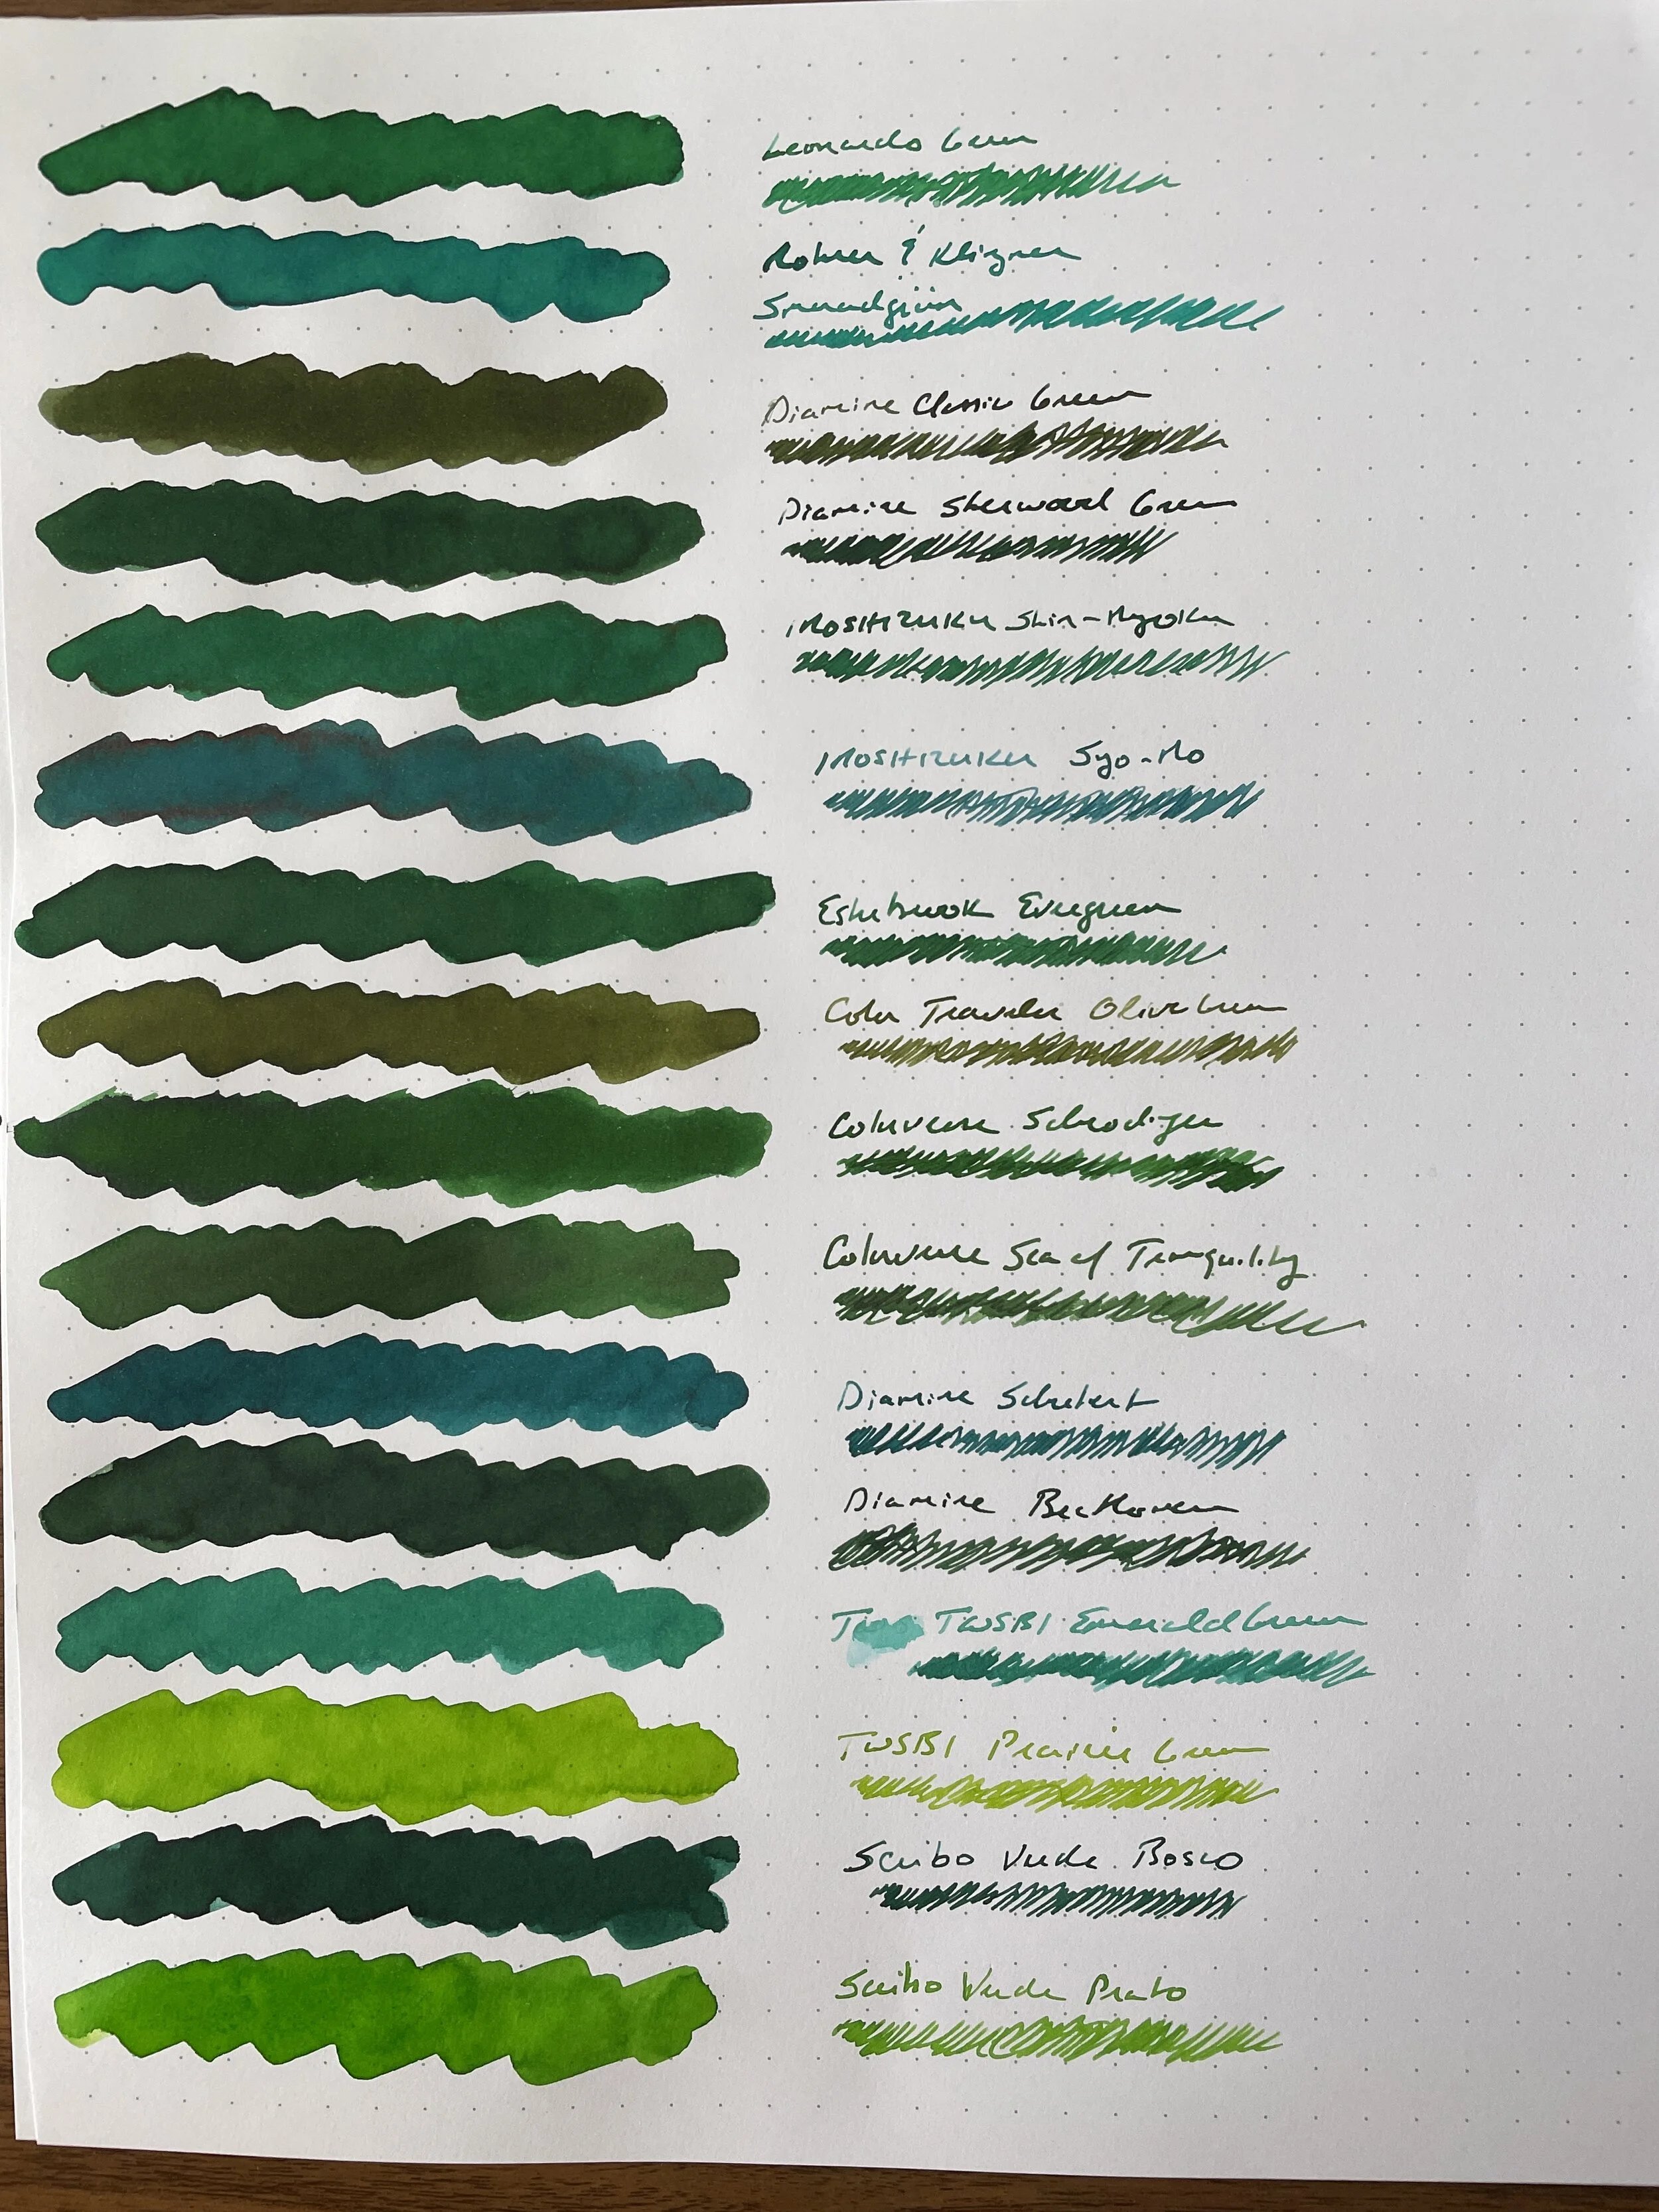 Leonardo Green
Rohrer & Klingner
Smaragdgrün
Diamine Classic Green
Diamine Sherwood Green
IROSHIZUKU Shin-Ryoku
IROSHIZUKU Syo-Ro
Esterbrook Evergreen
Color Traveler Olive Green
Colorverse Schrodiger
Colorverse Sea of Tranquility
Diamine Schubert
Diamine Beethoven
TWSBI Emerald Green
TWSBI Prairie Green
Scribo Verde Bosco
Scribo Verde Prato